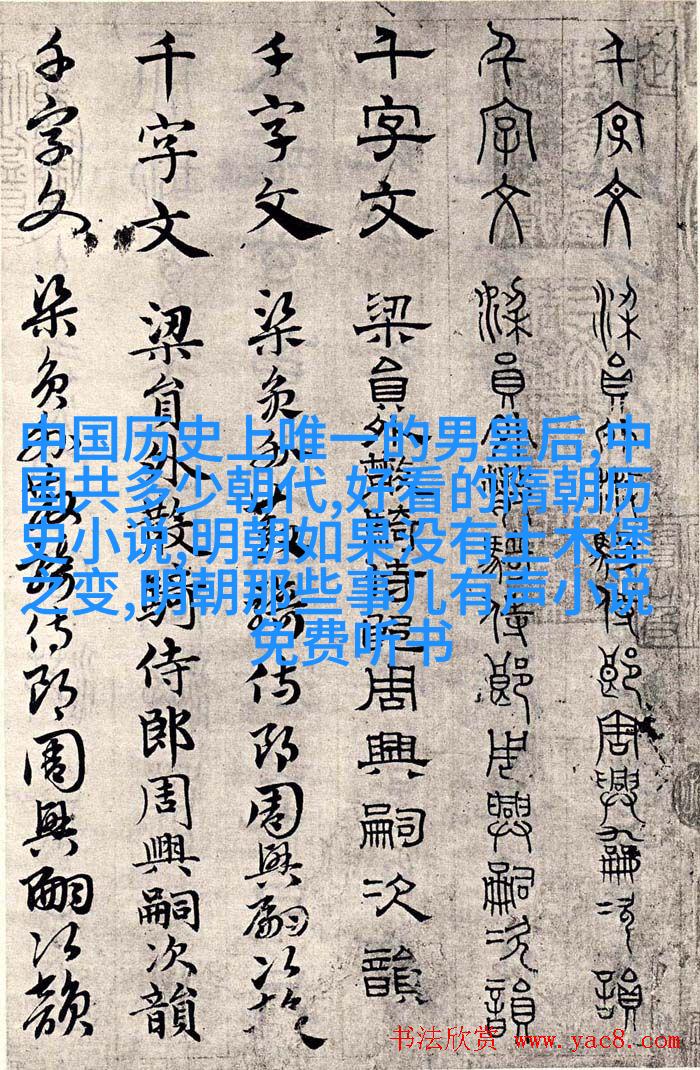 千字文 梁員外散騎侍郎周興嗣次韻
千字文 梁員外散騎侍郎周興嗣次韻
千字文 梁員外散騎侍郎周興嗣次韻
千字文 梁員外散騎侍郎周興嗣次韻
千字文 梁員外散騎侍郎周興嗣次韻
千字文 梁員外散騎侍郎周興嗣次韻
中国历史上唯一的男皇后,中
国共多少朝代,好看的隋朝历
史小说,明朝如果没有土木堡
之变,明朝那些事儿有声小说
免费听书
书法欣赏 www.yac8.com